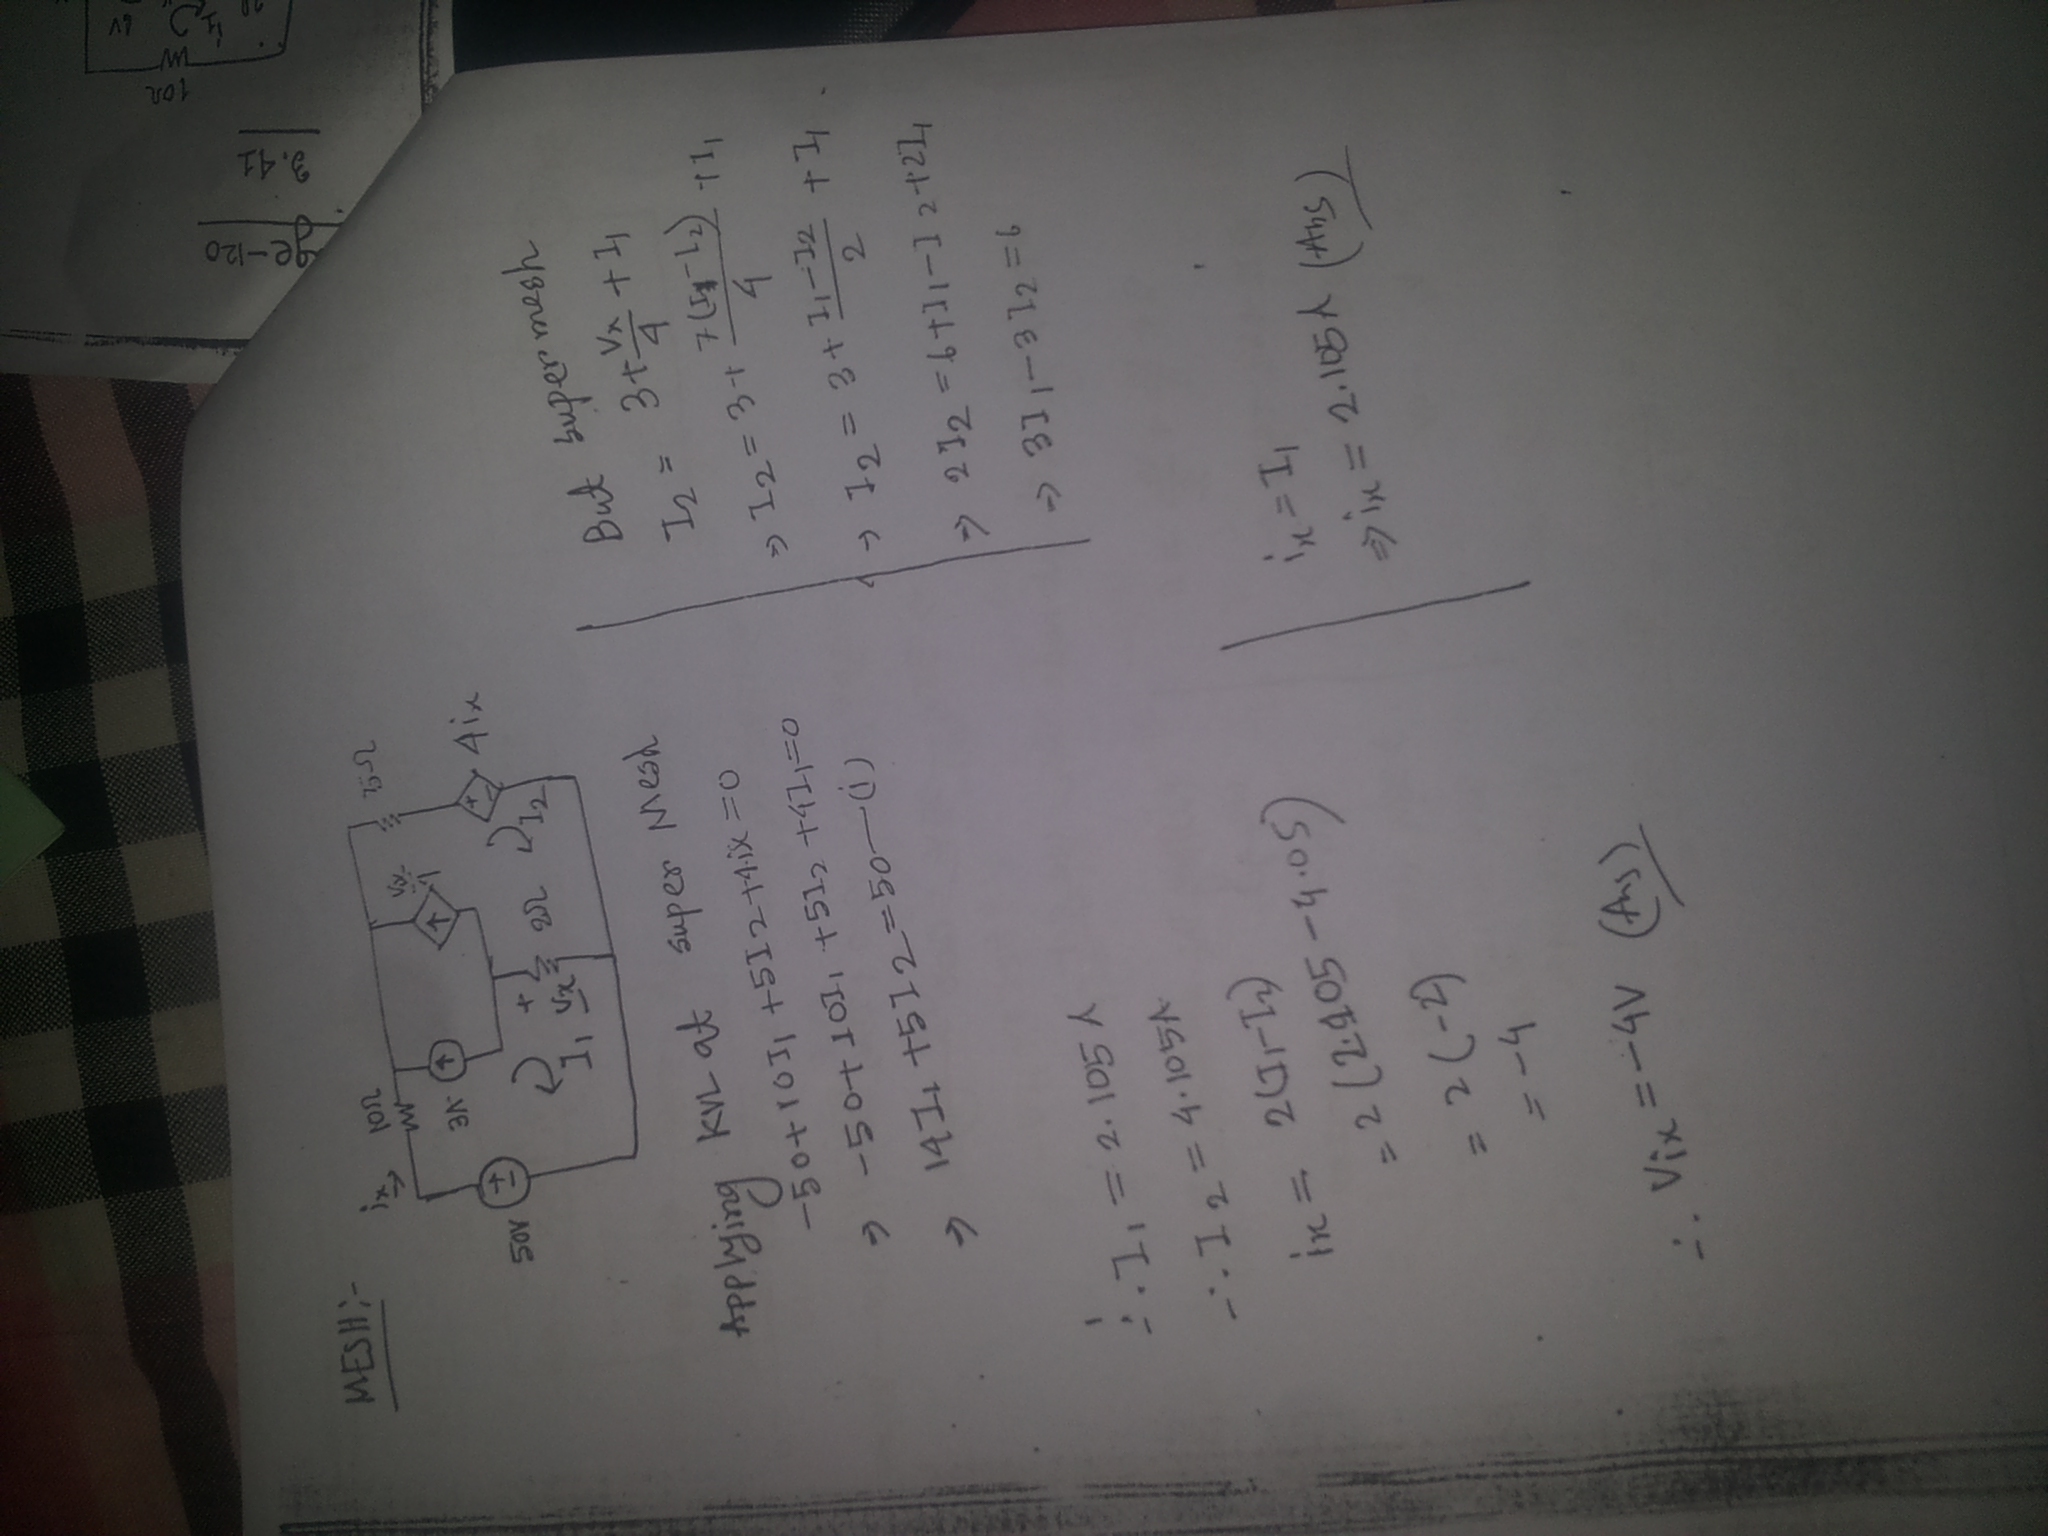 MESH:-
ix 10Ω
3A
Vx/4
5Ω
50V
I1
+
Vx
-
2Ω
I2
4ix
Applying KVL at super Mesh
-50+10I1+5I2+4ix=0
⇒ -50+10I1+5I2+4I1=0
⇒ 14I1+5I2=50—(i)
But super mesh
I2 = 3+Vx/4+I1
⇒ I2=3+7(I1-I2)/4+I1
⇒ I2=3+I1-I2/2+I1
⇒ 2I2=6+I1-I2+2I1
⇒ 3I1-3I2=6
∴ I1=2.105A
∴ I2=4.105A
ix = 2(I1-I2)
=2(2.105-4.05)
=2(-2)
=-4
∴ Vix=-4V (Ans)
ix=I1
⇒ix=2.105A (Ans)
ge-120
3.41
10Ω
i1
6V